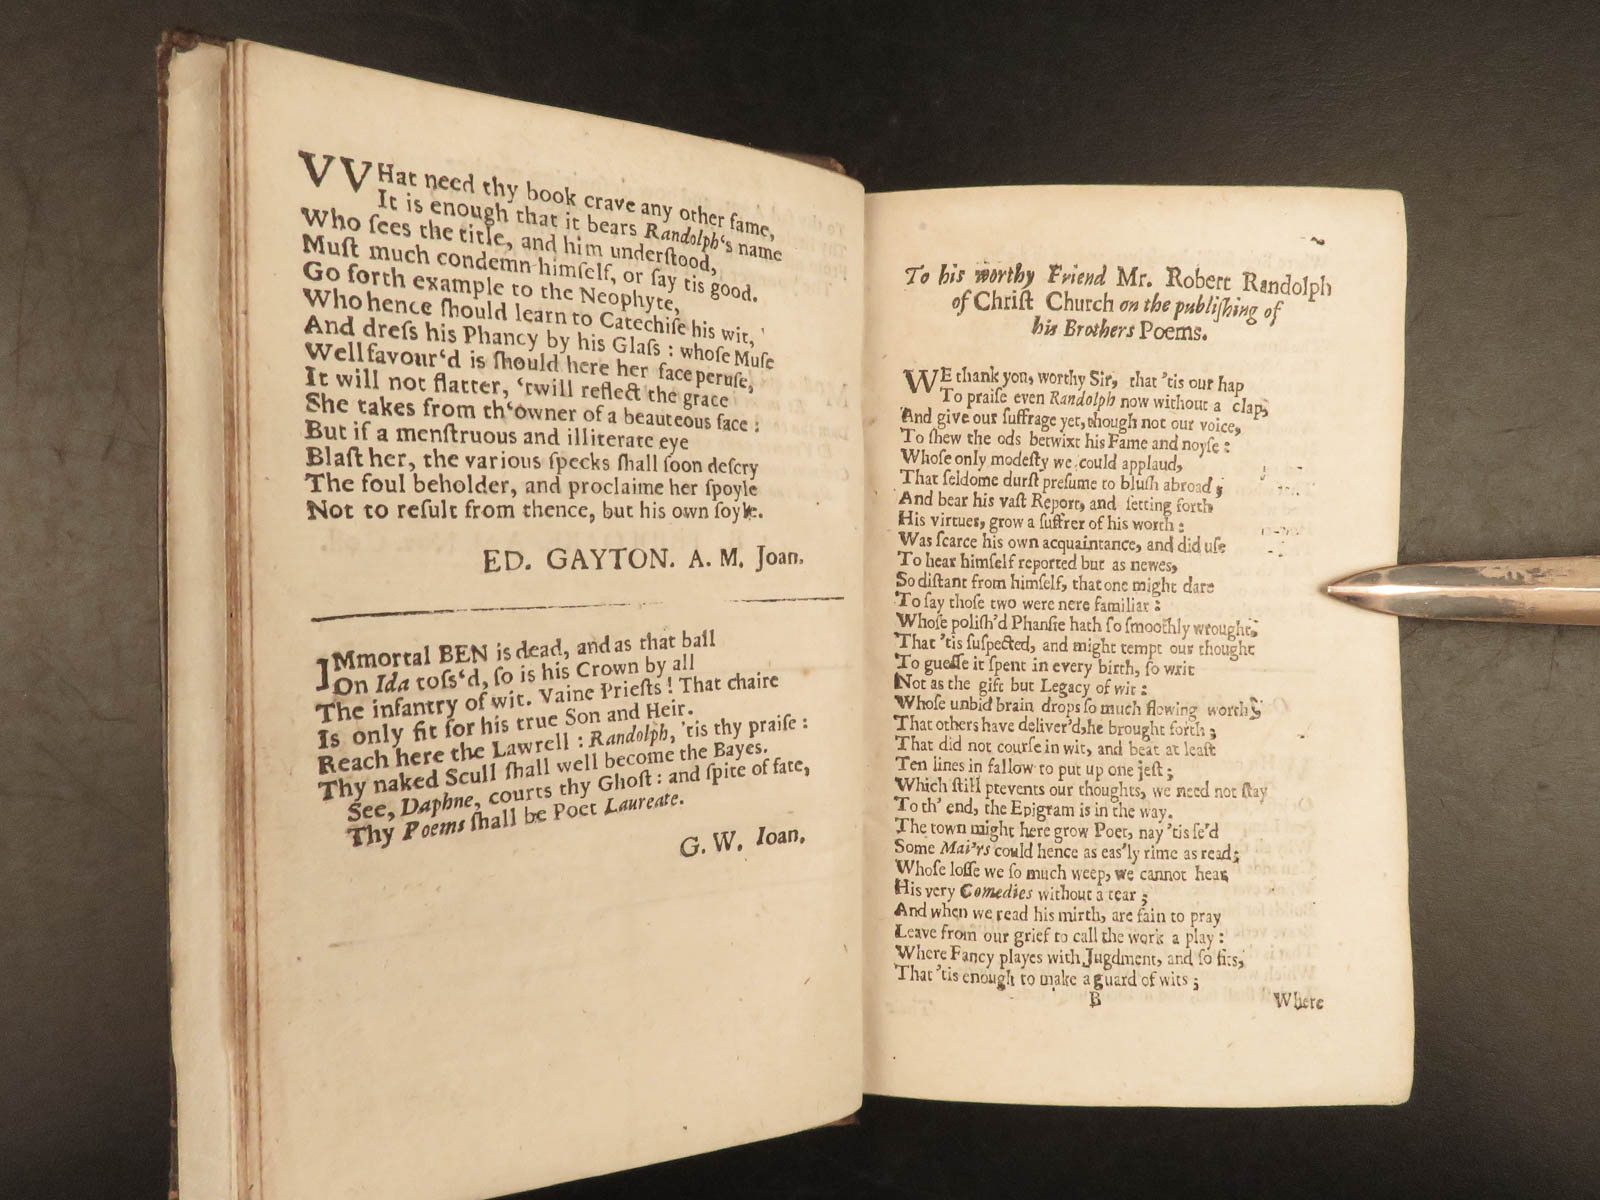 VVHat need thy book crave any other fame,
It is enough that it bears Randolph‘s name
Who ſees the title, and him underſtood,
Muſt much condemn himſelf, or ſay tis good.
Go forth example to the Neophyte,
Who hence ſhould learn to Catechiſe his wit,
And dreſs his Phancy by his Glaſs : whoſe Muſe
Wellfavour‘d is ſhould here her face peruſe,
It will not flatter, ‘twill reflect the grace
She takes from th‘owner of a beauteous face :
But if a menſtruous and illiterate eye
Blaſt her, the various ſpecks ſhall ſoon deſcry
The foul beholder, and proclaime her ſpoyle
Not to reſult from thence, but his own ſoyle.
ED. GAYTON. A. M. Joan.
IMmortal BEN is dead, and as that ball
On Ida toſs‘d, ſo is his Crown by all
The infantry of wit. Vaine Prieſts ! That chaire
Is only fit for his true Son and Heir.
Reach here the Lawrell : Randolph, 'tis thy praiſe :
Thy naked Scull ſhall well become the Bayes.
See, Daphne, courts thy Ghoſt : and ſpite of fate,
Thy Poems ſhall be Poet Laureate.
G. W. Ioan.
To his worthy Friend Mr. Robert Randolph
of Chriſt Church on the publiſhing of
his Brothers Poems.
WE thank you, worthy Sir, that 'tis our hap
To praiſe even Randolph now without a clap,
And give our ſuffrage yet, though not our voice,
To ſhew the ods betwixt his Fame and noyſe :
Whoſe only modeſty we could applaud,
That ſeldome durſt preſume to bluſh abroad ;
And bear his vaſt Report, and ſetting forth
His virtues, grow a ſuffrer of his worth :
Was ſcarce his own acquaintance, and did uſe
To hear himſelf reported but as newes,
So diſtant from himſelf, that one might dare
To ſay thoſe two were nere familiar :
Whoſe poliſh'd Phanſie hath ſo ſmoothly wrought,
That 'tis ſuſpected, and might tempt our thought
To gueſſe it ſpent in every birth, ſo writ
Not as the gift but Legacy of wit :
Whoſe unbid brain drops ſo much flowing worth,
That others have deliver'd, he brought forth ;
That did not courſe in wit, and beat at leaſt
Ten lines in fallow to put up one jeſt ;
Which ſtill prevents our thoughts, we need not ſtay
To th' end, the Epigram is in the way.
The town might here grow Poet, nay 'tis ſe'd
Some Mai'rs could hence as eas'ly rime as read;
Whoſe loſſe we ſo much weep, we cannot hear
His very Comedies without a tear ;
And when we read his mirth, are fain to pray
Leave from our grief to call the work a play :
Where Fancy playes with Jugdment, and ſo fits,
That 'tis enough to make a guard of wits ;
B Where